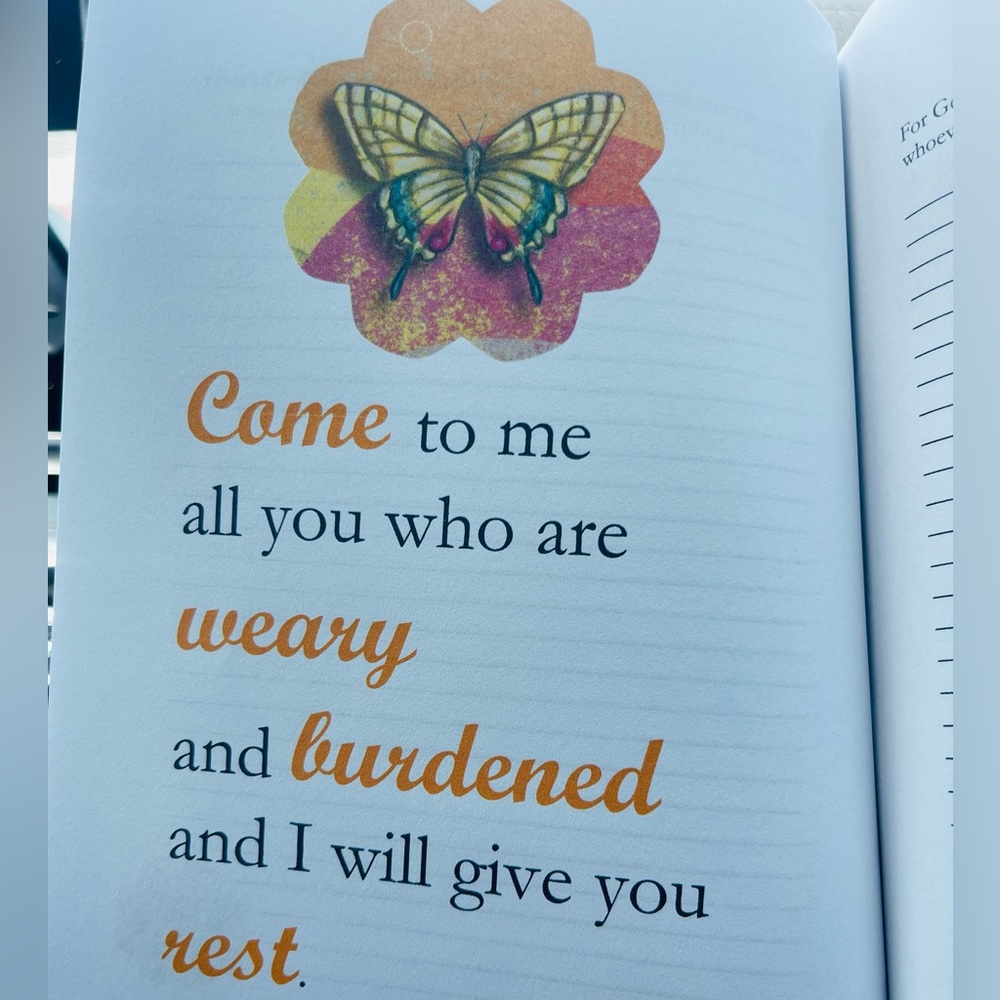 Come to me
all you who are
weary
and burdened
and I will give you
rest.
For
whoev